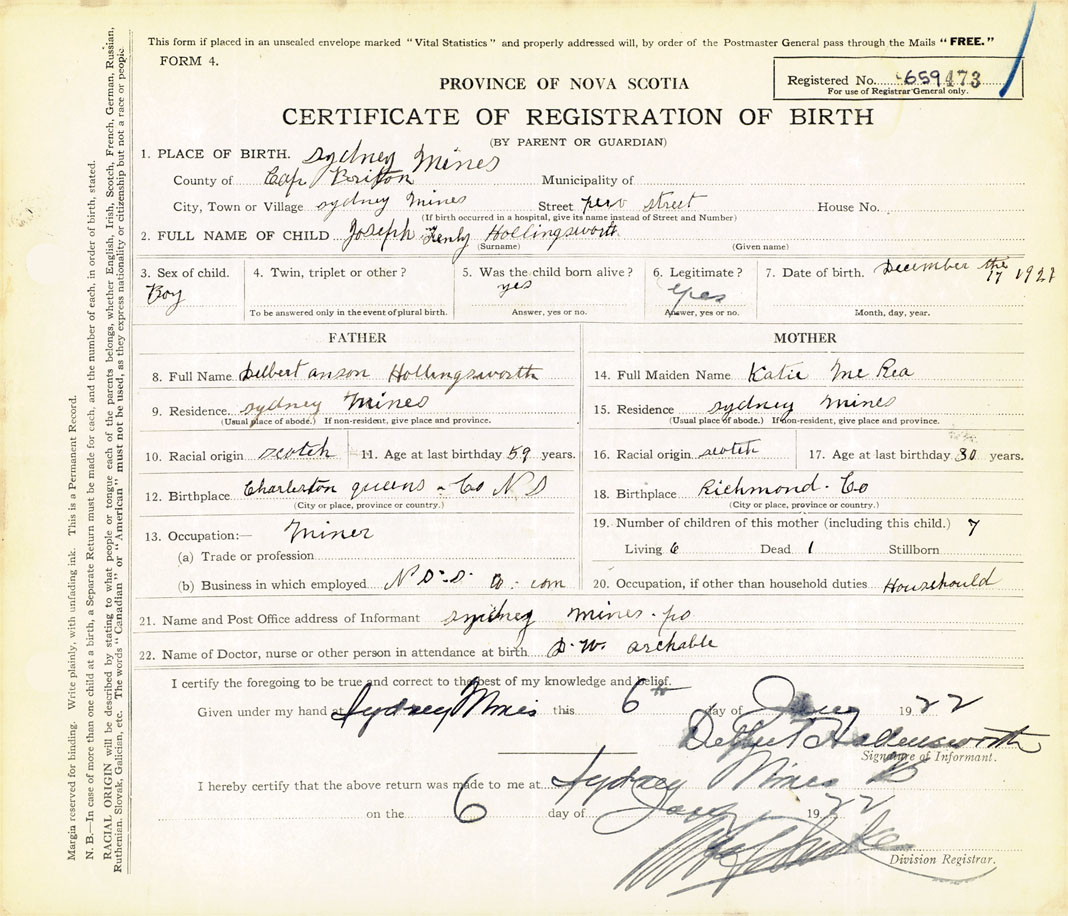 This form if placed in an unsealed envelope marked "Vital Statistics" and properly addressed will, by order of the Postmaster General pass through the Mails "FREE."
FORM 4.
Registered No. 659 473
For use of Registrar General only.
PROVINCE OF NOVA SCOTIA
CERTIFICATE OF REGISTRATION OF BIRTH
(BY PARENT OR GUARDIAN)
1. PLACE OF BIRTH. Sydney Mines
County of Cap Briton Municipality of
City, Town or Village sydney mines Street street House No.
(If birth occurred in a hospital, give its name instead of Street and Number)
2. FULL NAME OF CHILD Joseph Henly Hollingsworth
(Surname) (Given name)
3. Sex of child. Boy
4. Twin, triplet or other?
To be answered only in the event of plural birth.
5. Was the child born alive? yes
Answer, yes or no.
6. Legitimate? yes
Answer, yes or no.
7. Date of birth. December the 17 1921
Month, day, year.
FATHER
8. Full Name Delbert anson Hollingsworth
9. Residence sydney Mines
(Usual place of abode.) If non-resident, give place and province.
10. Racial origin scotch 11. Age at last birthday 59 years.
12. Birthplace Charleston queens - Co N S
(City or place, province or country.)
13. Occupation:— Miner
(a) Trade or profession
(b) Business in which employed N S. S. Co. com
MOTHER
14. Full Maiden Name Katie Mc Rea
15. Residence sydney mines
(Usual place of abode.) If non-resident, give place and province.
16. Racial origin scotch 17. Age at last birthday 30 years.
18. Birthplace Richmond. Co
(City or place, province or country.)
19. Number of children of this mother (including this child.) 7
Living 6 Dead 1 Stillborn
20. Occupation, if other than household duties Househould
21. Name and Post Office address of Informant sydney mines. po
22. Name of Doctor, nurse or other person in attendance at birth D. W. archable
I certify the foregoing to be true and correct to the best of my knowledge and belief.
Given under my hand at Sydney Mines this 6th day of Jany 1922
Delbert Hollensworth
Signature of Informant.
I hereby certify that the above return was made to me at Sydney Mines
on the 6 day of Jany 1922
Division Registrar.
Margia reserved for binding. Write plainly, with unfading ink. This is a Permanent Record.
N. B.—In case of more than one child at a birth, a Separate Return must be made for each, and the number of each, in order of birth, stated.
RACIAL ORIGIN will be described by stating to what people or tongue each of the parents belongs, whether English, Irish, Scotch, French, German, Russian,
Ruthenian, Slovak, Galician, etc. The words "Canadian" or "American" must not be used, as they express nationality or citizenship but not a race or people